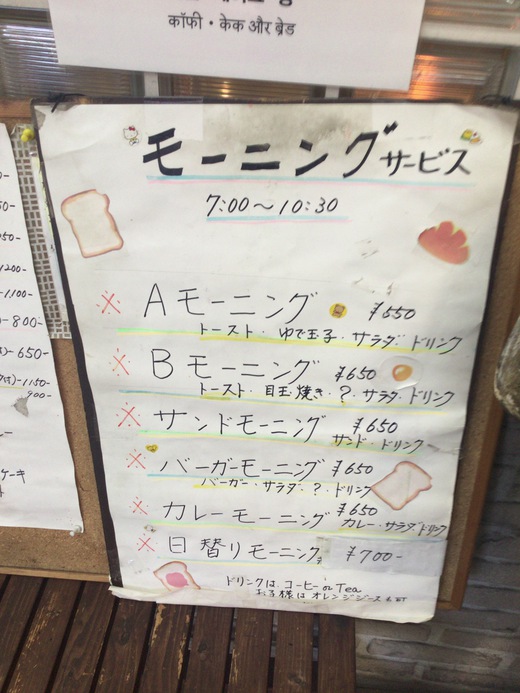 कॉफी・केक और ब्रेड
モーニングサービス
7:00～10:30
※ Aモーニング ¥550
トースト・ゆで玉子・サラダ・ドリンク
※ Bモーニング ¥650
トースト・目玉焼き・?・サラダ・ドリンク
※ サンドモーニング ¥650
サンド・ドリンク
※ バーガーモーニング ¥650
バーガー・サラダ・?・ドリンク
※ カレーモーニング ¥650
カレー・サラダ・ドリンク
※ 日替りモーニング ¥700-
ドリンクは、コーヒー or Tea
お子様は オレンジジュース
1200-
1100-
800-
650-
1150-
900-
ケーキ